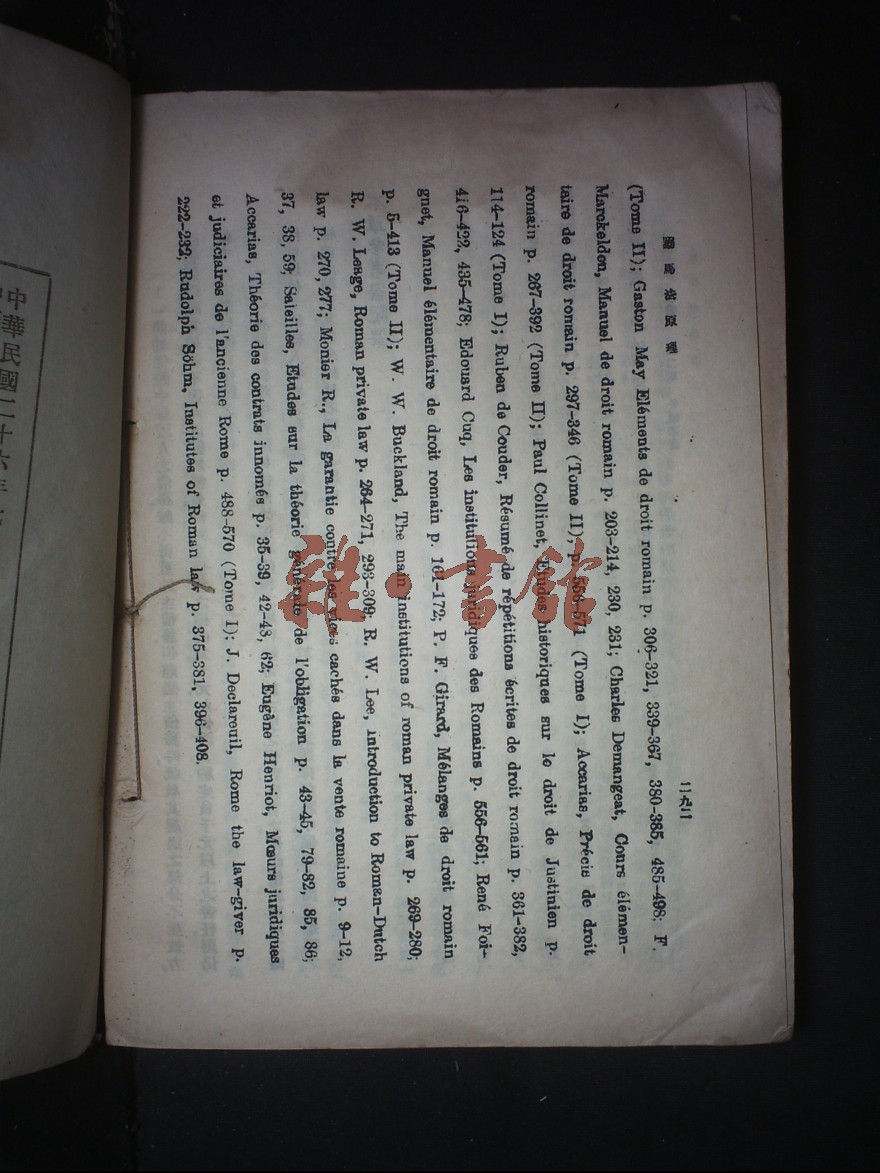 (Tome II); Gaston May Eléments de droit romain p. 306-321, 339-367, 380-385, 485-498; F.
Marokelden, Manuel de droit romain p. 203-214, 230, 231; Charles Demangeat, Cours élémen-
taire de droit romain p. 297-346 (Tome II); p. 553-571 (Tome I); Accarias, Précis de droit
romain p. 267-392 (Tome II); Paul Collinet, Etudes historiques sur le droit de Justinien p.
114-124 (Tome I); Ruben de Couder, Résumé de répétitions écrites de droit romain p. 361-382,
416-422, 435-478; Edouard Cuq, Les institutions juridiques des Romains p. 556-561; René Foi-
gnet, Manuel élémentaire de droit romain p. 161-172; P. F. Girard, Mélanges de droit romain
p. 5-413 (Tome II); W. W. Buckland, The main institutions of roman private law p. 269-280;
R. W. Leage, Roman private law p. 264-271, 293-309; R. W. Lee, introduction to Roman-Dutch
law p. 270, 277; Monier R., La garantie contre les vices cachés dans la vente romaine p. 9-12,
37, 38, 59; Saleilles, Etudes sur la théorie générale de l'obligation p. 43-45, 79-82, 85, 86;
Accarias, Théorie des contrats innomés p. 35-39, 42-43, 62; Eugène Henriot, Mœurs juridiques
et judiciaires de l'ancienne Rome p. 488-570 (Tome I); J. Declareuil, Rome the law-giver p.
222-232; Rudolph Söhm, Institutes of Roman law p. 375-381, 396-408.
中華民國二十六年